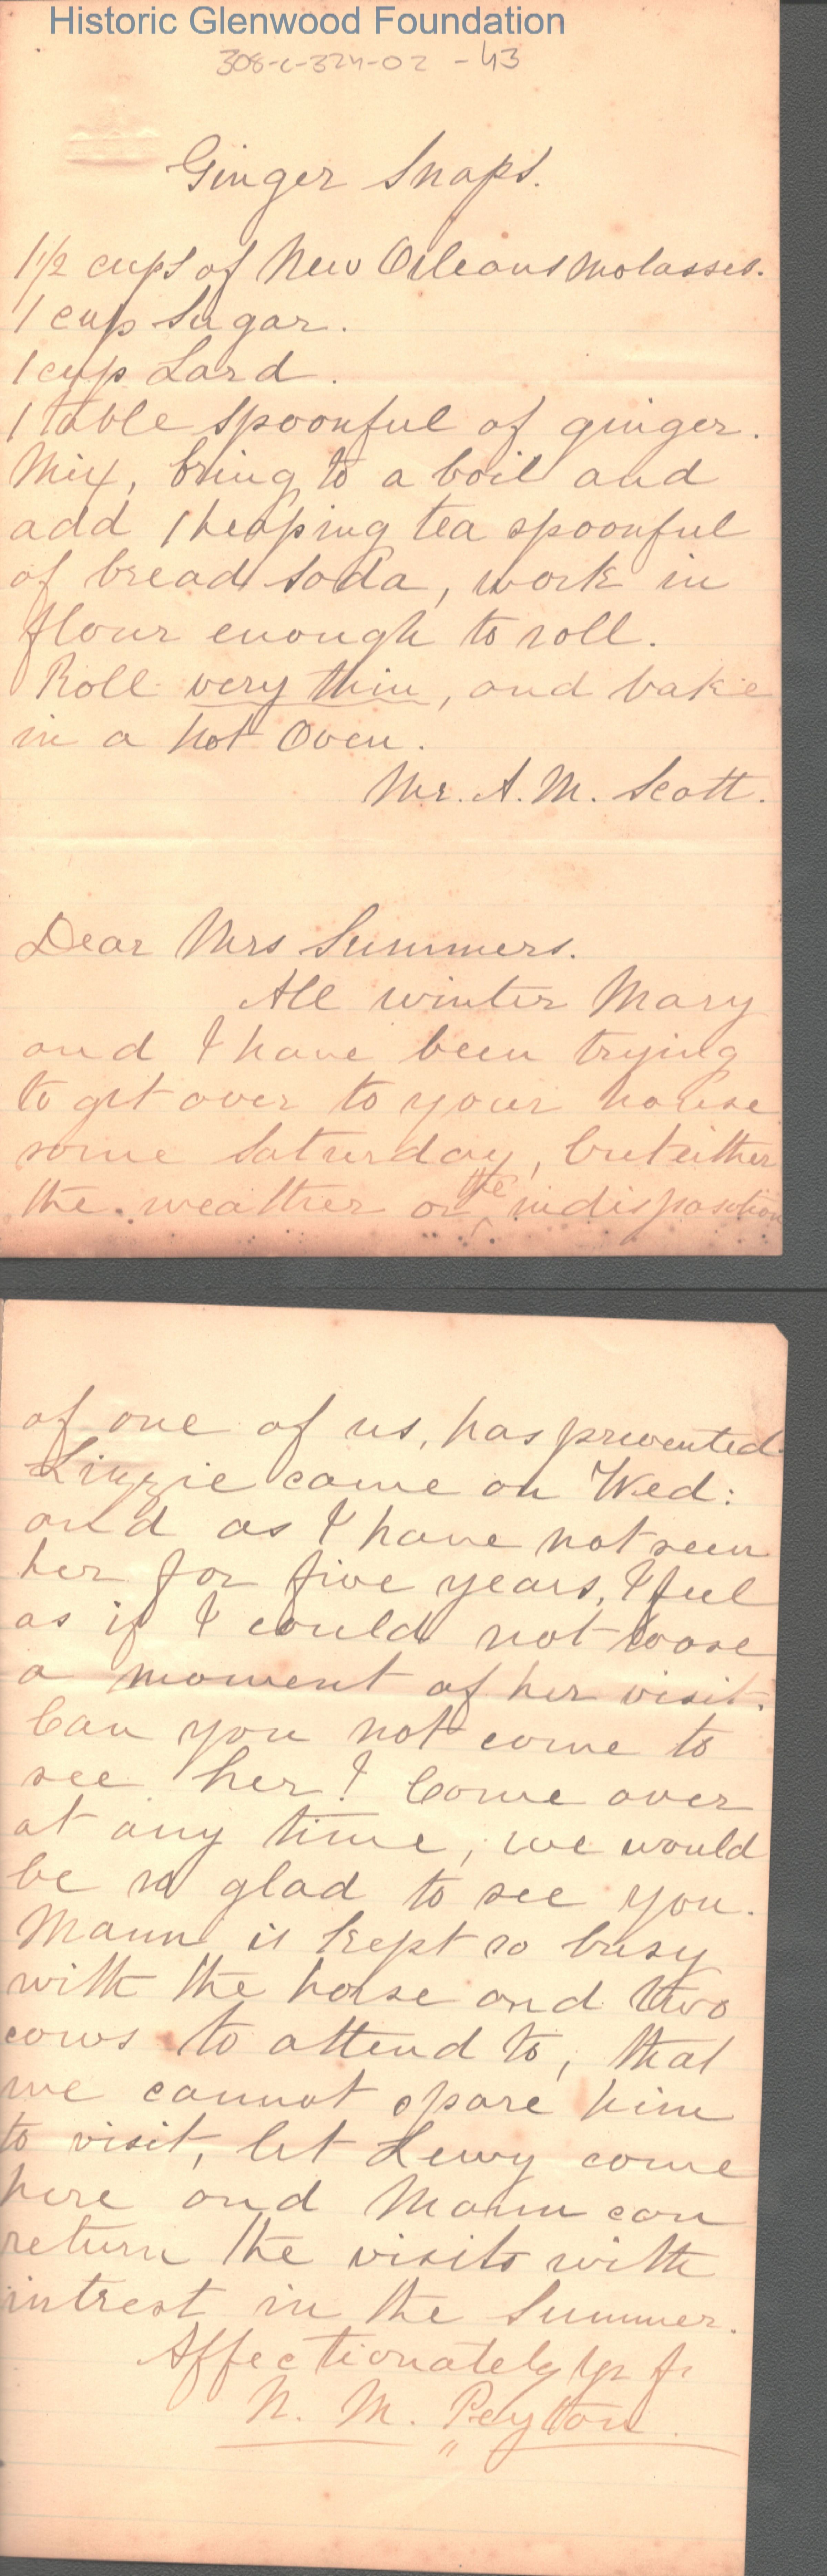 Historic Glenwood Foundation
308-c-324-02 - 43
Ginger Snaps.
1 1/2 cups of New Orleans Molasses.
1 cup Sugar.
1 cup Lard.
1 table spoonful of ginger.
Mix, bring to a boil and
add 1 heaping tea spoonful
of bread soda, work in
flour enough to roll.
Roll very thin, and bake
in a hot Oven.
Mr. A. M. Scott.
Dear Mrs Summers.
All winter Mary
and I have been trying
to get over to your house
some Saturday, but either
the weather or the indisposition
of one of us, has prevented.
Lizzie came on Wed:
and as I have not seen
her for five years, I feel
as if I could not loose
a moment of her visit.
Can you not come to
see her! Come over
at any time, we would
be so glad to see you.
Mann is kept so busy
with the horse and two
cows to attend to, that
we cannot spare him
to visit, let Lewy come
here and Mann can
return the visits with
intrest in the Summer.
Affectionately yr fr
N. M. Peyton.